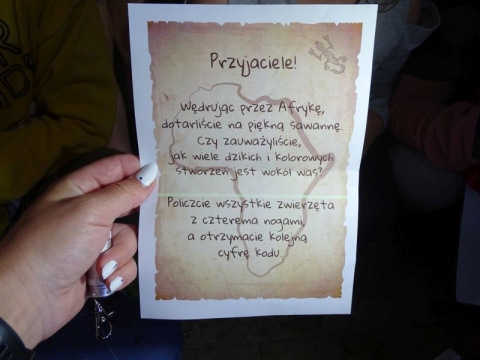 Przyjaciele!
Wędrując przez Afrykę,
dotarliście na piękną sawannę.
Czy zauważyliście,
jak wiele dzikich i kolorowych
stworzeń jest wokół was?
Policzcie wszystkie zwierzęta
z czterema nogami,
a otrzymacie kolejną
cyfrę kodu.